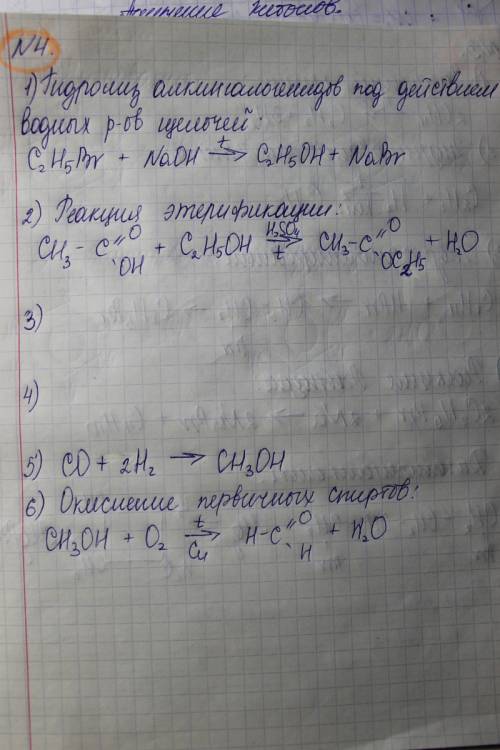 кетонов.
N4.
1) Гидролиз алкилгалогенидов под действием
водных р-ов щелочей:
C₂H₅Br + NaOH →(t) C₂H₅OH + NaBr
2) Реакция этерификации:
CH₃-C(=O)OH + C₂H₅OH →(H₂SO₄, t) CH₃-C(=O)OC₂H₅ + H₂O
3)
4)
5) CO + 2H₂ → CH₃OH
6) Окисление первичных спиртов:
CH₃OH + O₂ →(t, Cu) H-C(=O)H + H₂O